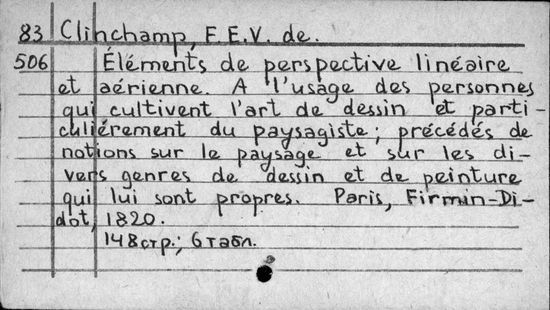 83 Clinchamp, F.E.V. de.
506 Éléments de perspective linéaire
et aérienne. A l'usage des personnes
qui cultivent l'art de dessin et parti-
culiérement du paysagiste; précédés de
notions sur le paysage et sur les di-
vers genres de dessin et de peinture
qui lui sont propres. Paris, Firmin-Di-
dot, 1820.
148 стр.; 6 табл.